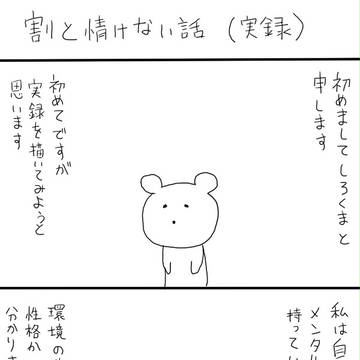 割と情けない話（実録）
初めまして しろくまと
申します
初めてですが
実録を描いてみようと
思います
私は自
メンタル
持ってい
環境の
性格か
分かりま